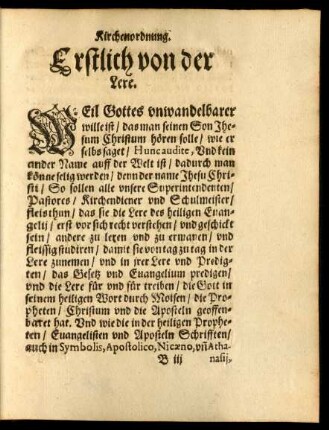 Kirchenordnung.
Erstlich von der
Lere.
WEil Gottes vnwandelbarer
wille ist / das man seinen Son Jhe-
sum Christum hören solle / wie er
selbs saget / Hunc audite, Vnd kein
ander Name auff der Welt ist / dadurch man
könne selig werden / denn der name Jhesu Chri-
sti / So sollen alle vnsere Superintendenten /
Pastores / Kirchendiener vnd Schulmeister /
fleis thun / das sie die Lere des heiligen Euan-
gelij / erst vor sich recht verstehen / vnd geschickt
sein / andere zu leren vnd zu erbawen / vnd
fleissig studiren / damit sie von tag zu tag in der
Lere zunemen / vnd in jrer Lere vnd Predig-
ten / das Gesetz vnd Euangelium predigen /
vnd die Lere für vnd für treiben / die Gott in
seinem heiligen Wort durch Moisen / die Pro-
pheten / Christum vnd die Aposteln geoffen-
baret hat. Vnd wie die in der heiligen Prophe-
ten / Euangelisten vnd Aposteln Schrifften /
auch in Symbolis, Apostolico, Nicæno, vñ Atha-
B iij nasij,